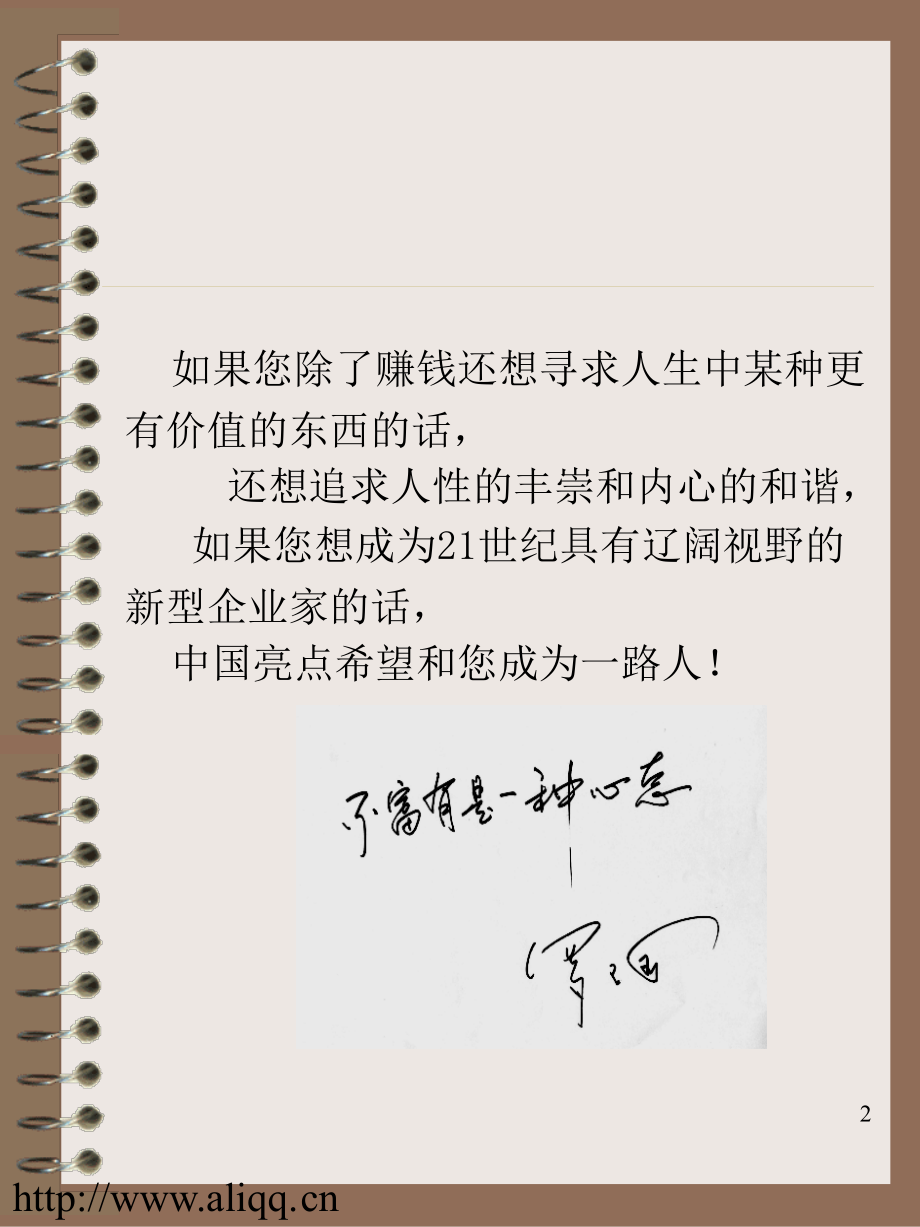 如果您除了赚钱还想寻求人生中某种更
有价值的东西的话，
还想追求人性的丰崇和内心的和谐，
如果您想成为21世纪具有辽阔视野的
新型企业家的话，
中国亮点希望和您成为一路人！
不富有是一种心态
2
http://www.aliqq.cn